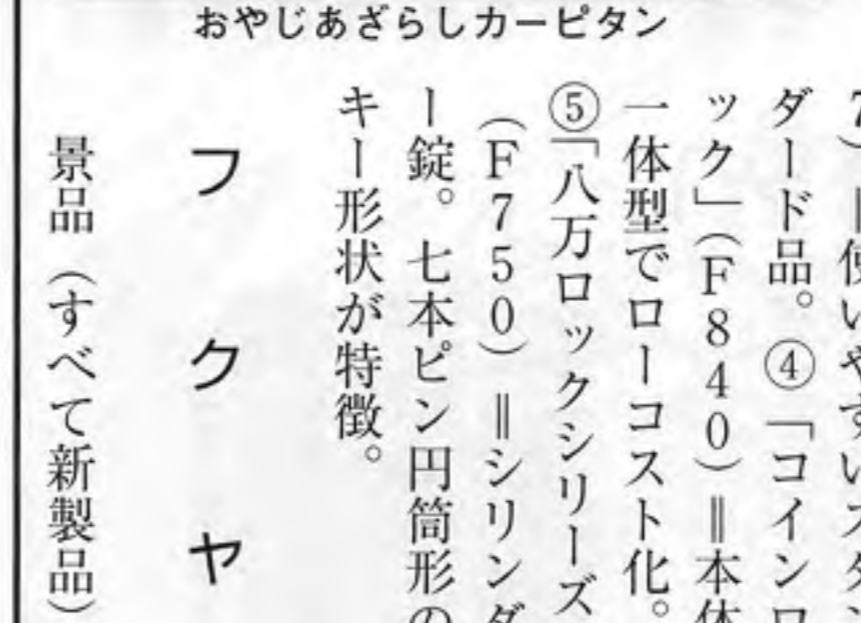 おやじあざらしカーピタン
7）＝使いやすいスタン
ダード品。④「コインロ
ック」（F840）＝本体
一体型でローコスト化。
⑤「八万ロックシリーズ
（F750）＝シリンダ
ー錠。七本ピン円筒形の
キー形状が特徴。
フクヤ
景品（すべて新製品）